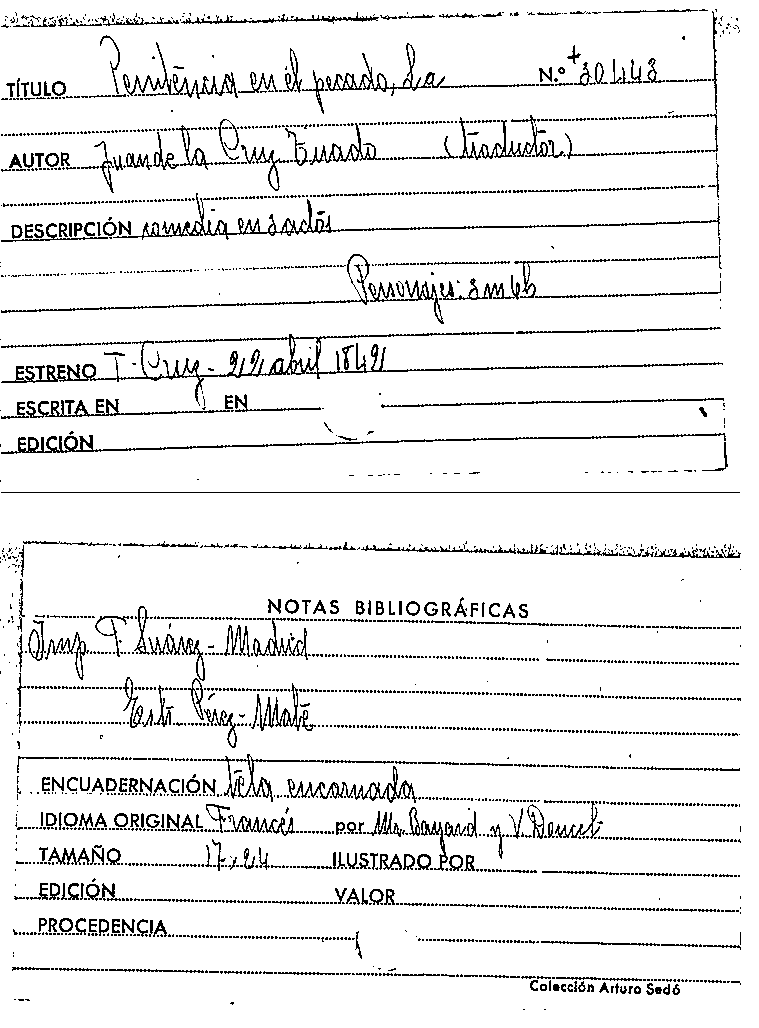 TÍTULO Penitencia en el pecado, La N.º + 30443
AUTOR Juan de la Cruz Tirado (traductor)
DESCRIPCIÓN comedia en 3 actos
Personajes: 3 m 6 h
ESTRENO T. Cruz - 22 abril 1842
ESCRITA EN EN
EDICIÓN
NOTAS BIBLIOGRÁFICAS
Imp. F. Suárez - Madrid
Pérez -
ENCUADERNACIÓN tela encarnada
IDIOMA ORIGINAL Francés por Mr. Bayard y V.
TAMAÑO 17 x 24 ILUSTRADO POR
EDICIÓN VALOR
PROCEDENCIA
Colección Arturo Sedó